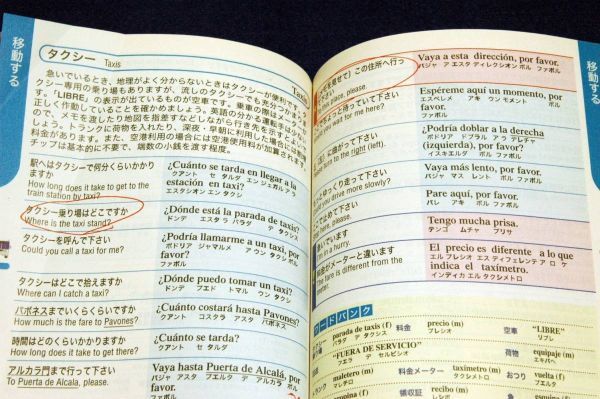 移動する
タクシー Taxis
急いでいるとき、地理がよく分からないときはタクシーが便利です。タ
クシー専用の乗り場もありますが、流しのタクシーでも充分つかまりま
す。「LIBRE」の表示が出ているものが空車です。乗車の際はメーターが
正しく作動していることを確かめましょう。英語の分かる運転手は少ない
ので、メモを渡したり地図を指差すなどしながら行き先を示すとよいで
しょう。トランクに荷物を入れたり、深夜・早朝に利用した場合には追加
料金があります。また、空港利用の場合には空港使用料が加算されます。
チップは基本的に不要で、端数の小銭を渡す程度。
駅へはタクシーで何分くらいかかり
ますか
How long does it take to get to the
train station by taxi?
¿Cuánto se tarda en llegar a la
estación en taxi?
クアント セ タルダ エン ジェガル ア ラ
エスタシオン エン タクシ
タクシー乗り場はどこですか
Where is the taxi stand?
¿Dónde está la parada de taxis?
ドンデ エスタ ラ パラダ デ タクシス
タクシーを呼んで下さい
Could you call a taxi for me?
¿Podría llamarme a un taxi, por
favor?
ポドリア ジャマルメ ア ウン タクシ ポル
ファボル
タクシーはどこで拾えますか
Where can I catch a taxi?
¿Dónde puedo tomar un taxi?
ドンデ プエド トマル ウン タクシ
パボネスまでいくらくらいですか
How much is the fare to Pavones?
¿Cuánto costará hasta Pavones?
クアント コスタラ アスタ パボネス
時間はどのくらいかかりますか
How long does it take to get there?
¿Cuánto se tarda?
クアント セ タルダ
アルカラ門まで行って下さい
To Puerta de Alcalá, please.
Vaya hasta Puerta de Alcalá, por
favor.
バジャ アスタ プエルタ デ アルカラ ポル
ファボル
移動する
Taxis
を見せて）この住所へ行っ
place, please.
Vaya a esta dirección, por favor.
バジャ ア エスタ ディレクシオン ポル ファボル
っと待っていて下さい
you wait for me here?
Espéreme aquí un momento, por
favor.
エスペレメ アキ ウン モメント ポル
ファボル
に曲がって下さい
to the right (left).
¿Podría doblar a la derecha
(izquierda), por favor?
ポドリア ドブラル ア ラ デレチャ
（イスキエルダ） ポル ファボル
っくり走って下さい
you drive more slowly?
Vaya más lento, por favor.
バジャ マス レント ポル ファボル
て下さい
here, please.
Pare aquí, por favor.
パレ アキ ポル ファボル
いでいます
in a hurry.
Tengo mucha prisa.
テンゴ ムチャ プリサ
料金がメーターと違います
The fare is different from the
meter.
El precio es diferente a lo que
indica el taxímetro.
エル プレシオ エス ディフェレンテ ア ロ ケ
インディカ エル タクシメトロ
ワードバンク
parada de taxis (f)
パラダ デ タクシス
料金
precio (m)
プレシオ
空車
"LIBRE"
リブレ
"FUERA DE SERVICIO"
フエラ デ セルビシオ
荷物
equipaje (m)
エキパヘ
トランク
maletero (m)
マレテロ
料金メーター
taxímetro (m)
タクシメトロ
おつり
vuelta (f)
ブエルタ
領収証
recibo (m)
レシボ